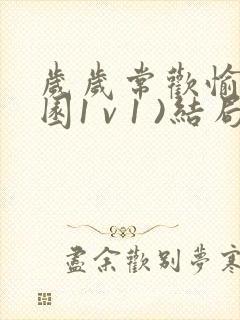 歲歲常歡愉
園1v1)結局
盡余歡別夢寒